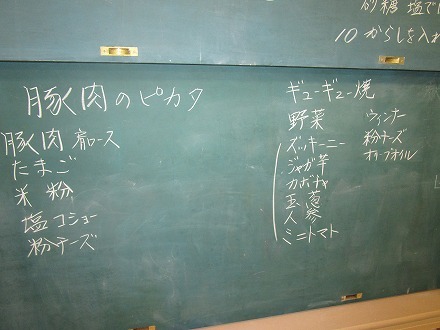 砂糖 塩で
10 からしを入れ
豚肉のピカタ
豚肉 肩ロース
たまご
米粉
塩コショー
粉チーズ
ギューギュー焼
野菜
ズッキーニー
ジャガ芋
カボチャ
玉葱
人参
ミニトマト
ウィンナー
粉チーズ
オリーブオイル